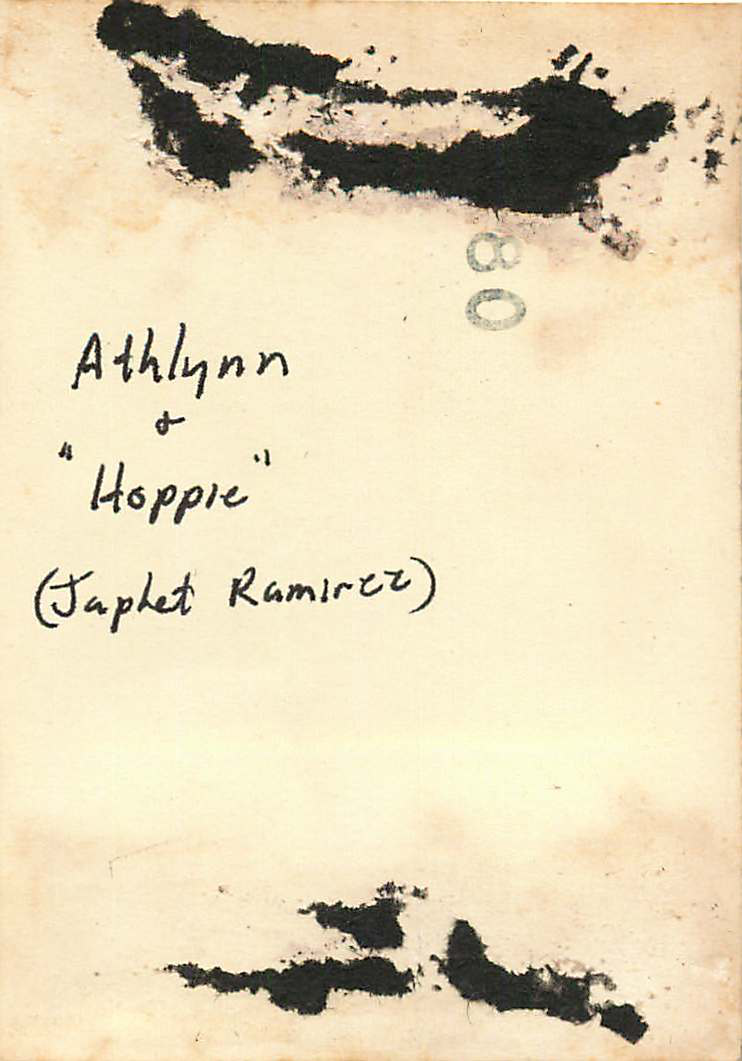 80
Athlynn
&
"Hoppie"
(Japhet Ramirez)